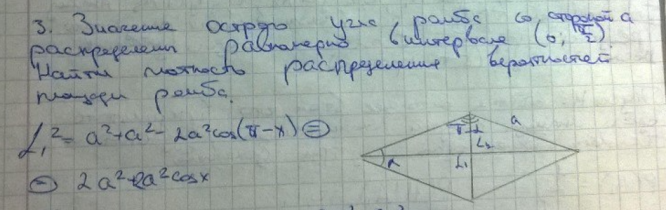 3. Значение острого угла ромба со стороной a
распределено равномерно в интервале (0; π/2)
Найти плотность распределения вероятностей
площади ромба.
L₁² = a² + a² - 2a² cos(π - x) =
= 2a² + 2a² cos x
π-x
a
L₂
x
L₁